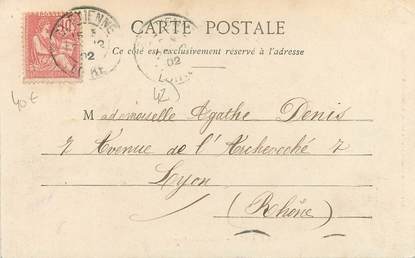 CARTE POSTALE
Ce côté est exclusivement réservé à l'adresse
ETIENNE
02
LOIRE
02
LOIRE
40 €
42
Mademoiselle Agathe Denis
7 Avenue de l'Archevêché 7
Lyon
(Rhône)